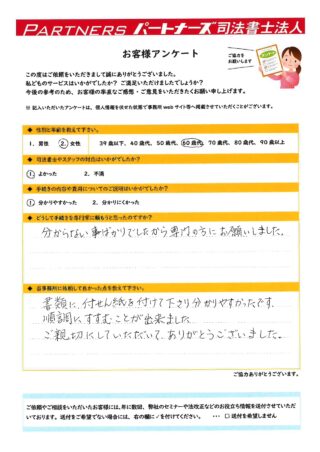 PARTNERS パートナーズ司法書士法人
お客様アンケート
ご協力を
お願いします
この度はご依頼をいただきまして誠にありがとうございました。
私どものサービスはいかがでしたか？ ご満足いただけましたでしょうか？
今後の参考のため、お客様の率直なご感想・ご意見をいただきたくお願い申し上げます。
※ 記入いただいたアンケートは、個人情報を伏せた状態で事務所 web サイト等へ掲載させていただくことがございます。
◆ 性別と年齢を教えて下さい。
1．男性 2．女性 39歳以下、40歳代、50歳代、60歳代、70歳代、80歳代、90歳以上
◆ 司法書士やスタッフの対応はいかがでしたか？
1．よかった 2．不満
◆ 手続きの内容や費用についてのご説明はいかがでしたか？
1．分かりやすかった 2．分かりにくかった
◆ どうして手続きを専門家に頼もうと思ったのですか？
分からない事ばかりでしたから専門の方にお願いしました。
◆ 当事務所に依頼して良かった点を教えて下さい。
書類に、付せん紙を付けて下さり分かりやすかったです。
順調にすすむことが出来ました。
ご親切にしていただいて、ありがとうございました。
ご協力ありがとうございます。
ご依頼やご相談をいただいたお客様には、年に数回、弊社のセミナーや法改正などのお役立ち情報を送付させていただいて
おります。送付をご希望でない場合には、右の欄に✓を付けてください。 ・・・ □ 送付を希望しません